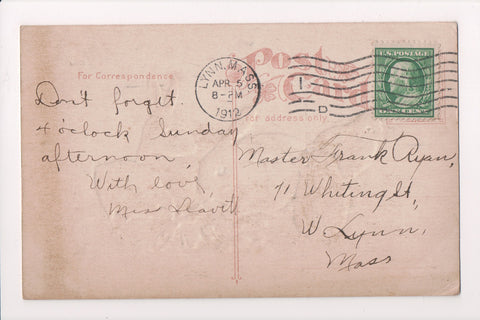 Post
Card
For Correspondence
for address only.
LYNN, MASS.
APR 5
8-PM
1912
1
D
U.S. POSTAGE
Don't forget.
4 o'clock Sunday
afternoon,
With love,
Miss
Master Frank Ryan,
71 Whiting St,
W Lynn,
Mass